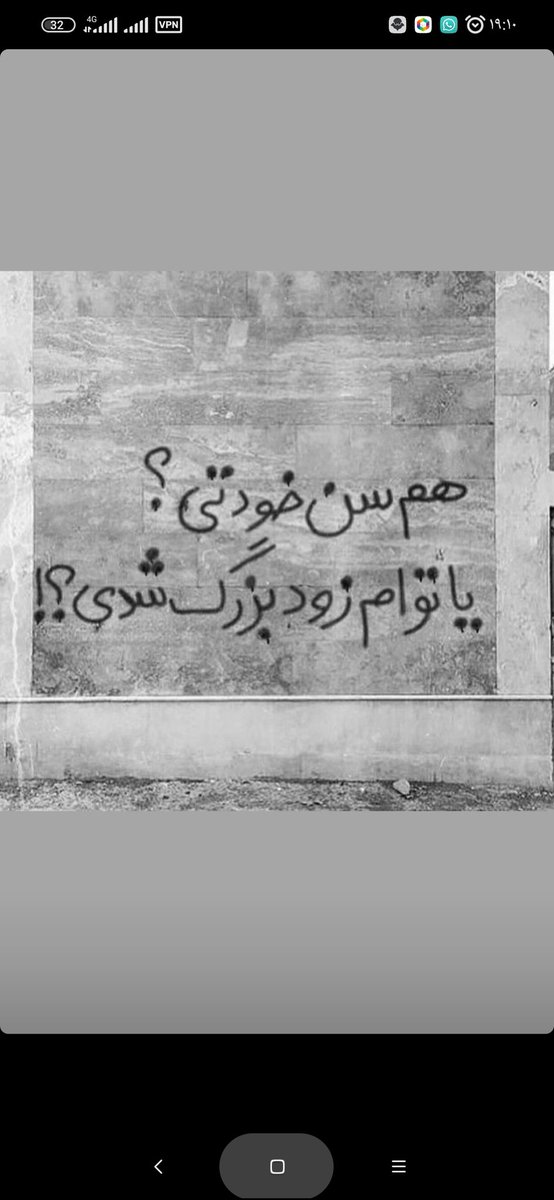 32 4G VPN ۱۹:۱۰
هم سن خودتی ؟
یا توام زود بزرگ شدی ؟!